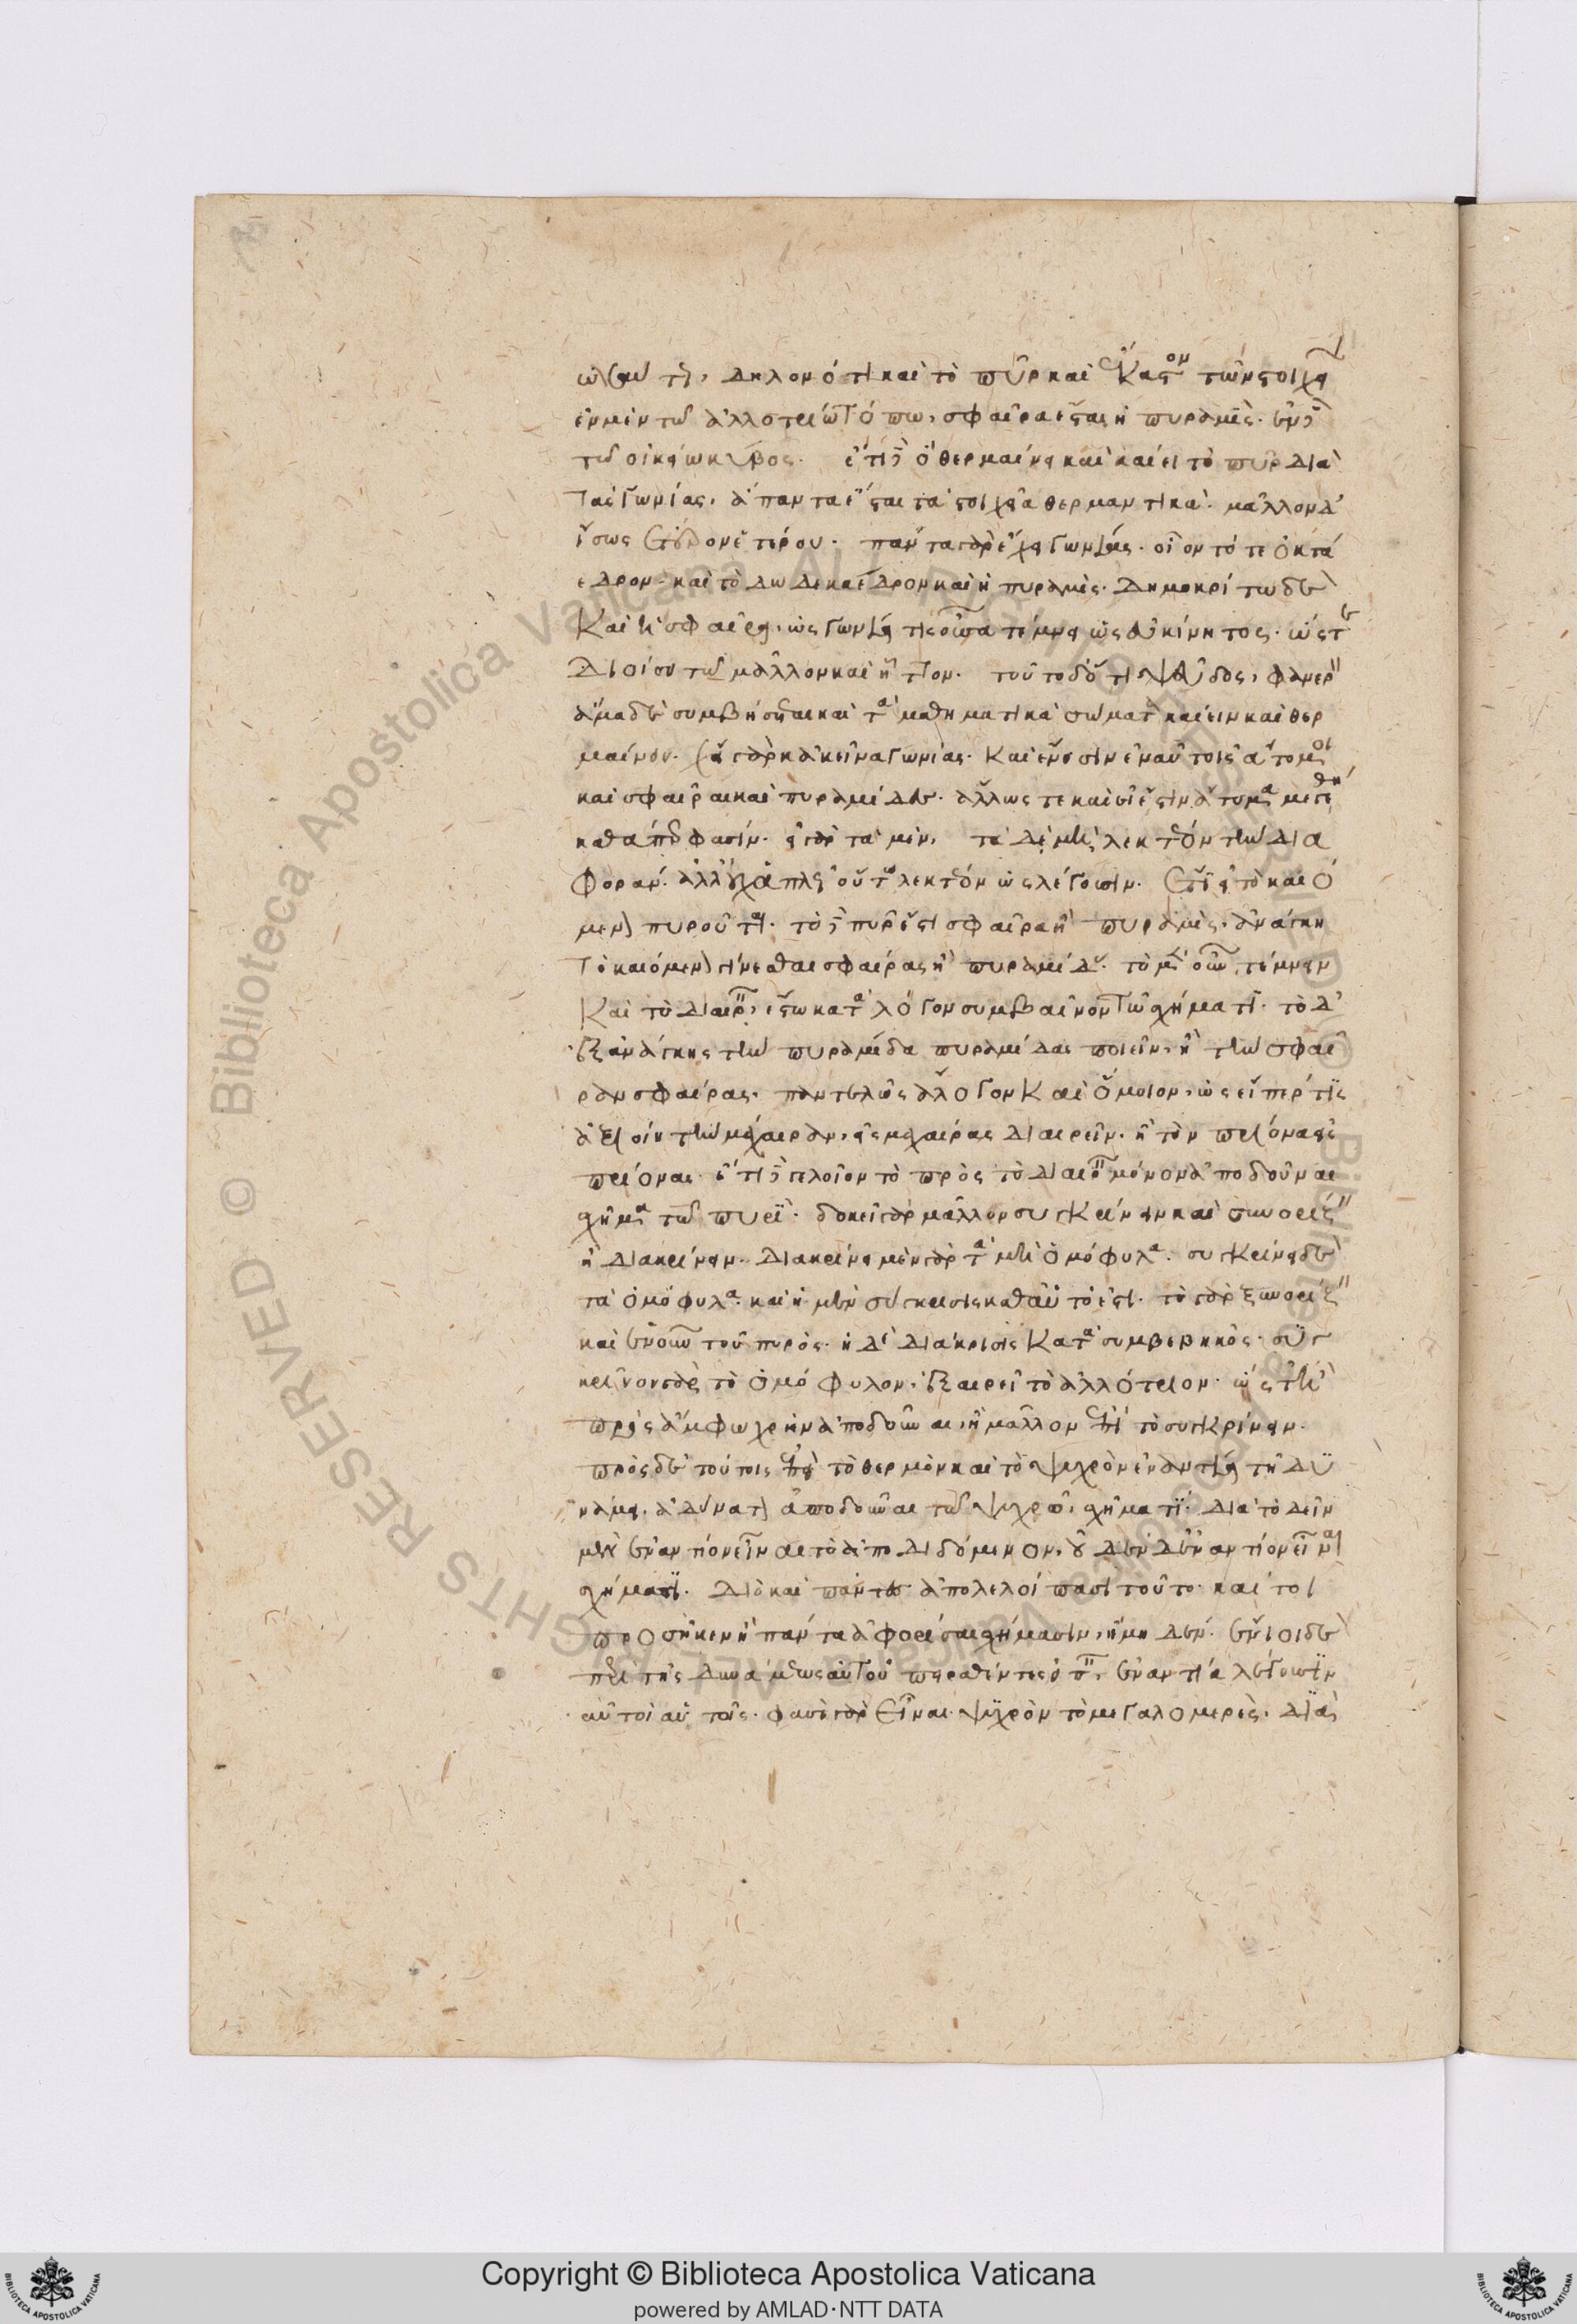 ὡσαύτως, δηλονότι καὶ τὸ πῦρ καὶ ἕκαστον τῶν στοιχείων
ἐν μὲν τῶ ἀλλοτρίω τόπω, σφαῖρα ἔσται ἢ πυραμίς· ἐν δὲ
τῶ οἰκείω κύβος. ἔτι δὲ εἰ θερμαίνει καὶ καίει τὸ πῦρ διὰ
τὰς γωνίας, ἅπαντα ἔσται τὰ στοιχεῖα θερμαντικά. μᾶλλον δ'
ἴσως ἕτερον ἑτέρου. πάντα γὰρ ἔχει γωνίας. οἷον τό τε ὀκτά
εδρον καὶ τὸ δωδεκάεδρον καὶ ἡ πυραμίς. Δημοκρίτω δὲ
Καὶ ἡ σφαῖρα, ὡς γωνία τις οὖσα τέμνει ὡς εὐκίνητος. ὥστε
Διοίσει τῶ μᾶλλον καὶ ἧττον. τοῦτο δ' ὅτι ψεῦδος, φανερόν
ἅμα δὲ συμβήσεται καὶ τὰ μαθηματικὰ σώματα καίειν καὶ θερ
μαίνειν. ἔχει γὰρ κἀκεῖνα γωνίας. Καὶ ἔνεισιν ἐν αὐτοῖς ἄτομοι
καὶ σφαῖραι καὶ πυραμίδες. ἄλλως τε καὶ εἰ ἔστιν ἄτομα μεγέθη
καθάπερ φασίν. εἰ γὰρ τὰ μὲν, τὰ δὲ μὴ, λεκτέον τὴν δια
φοράν. ἀλλ' οὐχ ἁπλῶς οὕτω λεκτέον ὡς λέγουσιν. ἔτι εἰ τὸ καιό
μενον πυροῦται· τὸ δὲ πῦρ ἐστι σφαῖρα ἢ πυραμίς, ἀνάγκη
Τὸ καιόμενον γίνεσθαι σφαίρας ἢ πυραμίδας. τὸ μὲν οὖν τέμνειν
Καὶ τὸ διαιρεῖν, ἔστω κατὰ λόγον συμβαῖνον τῶ σχήματι. τὸ δ'
ἐξ ἀνάγκης τὴν πυραμίδα πυραμίδας ποιεῖν, ἢ τὴν σφαῖ
ραν σφαίρας. παντελῶς ἄλογον Καὶ ὅμοιον, ὡς εἴ περ τις
ἀξιοίη τὴν μάχαιραν, εἰς μαχαίρας διαιρεῖν. ἢ τὸν πρίονα εἰς
πρίονας. ἔτι δὲ γελοῖον τὸ πρὸς τὸ διαιρεῖν μόνον ἀποδοῦναι
σχῆμα τῶ πυρί. δοκεῖ γὰρ μᾶλλον συγκρίνειν καὶ συνορίζειν
ἢ διακρίνειν. διακρίνει μὲν γὰρ τὰ μὴ ὁμόφυλα. συγκρίνει δὲ
τὰ ὁμόφυλα. καὶ ἡ μὲν σύγκρισις καθ' αὑτό ἐστι. τὸ γὰρ συνορίζειν
καὶ ἑνοῦν τοῦ πυρός. ἡ δὲ διάκρισις Κατὰ συμβεβηκός. συγ
κρῖνον γὰρ τὸ ὁμόφυλον, ἐξαιρεῖ τὸ ἀλλότριον. ὥστε ἢ
πρὸς ἄμφω χρὴν ἀποδοῦναι, ἢ μᾶλλον ἐπὶ τὸ συγκρίνειν.
πρὸς δὲ τούτοις ἐπεὶ τὸ θερμὸν καὶ τὸ ψυχρὸν ἐναντία τῆ δυ
νάμει, ἀδύνατον ἀποδοῦναι τῶ ψυχρῶ, σχῆμα τι. διὰ τὸ δεῖν
μὲν ἐναντίον εἶναι τὸ ἀποδιδόμενον, οὐδὲν δ' ἐναντίον εἶναι
σχήματι. Διὸ καὶ πάντες ἀπολελοίπασι τοῦτο. καίτοι
προσῆκεν ἢ πάντα ἀφορίσαι σχήμασιν, ἢ μηδέν. ἔνιοι δὲ
περὶ τῆς δυνάμεως αὐτοῦ πειραθέντες εἰπεῖν, ἐναντία λέγουσιν
αὐτοὶ αὑτοῖς. φασὶ γὰρ εἶναι ψυχρὸν τὸ μεγαλομερὲς, διὰ